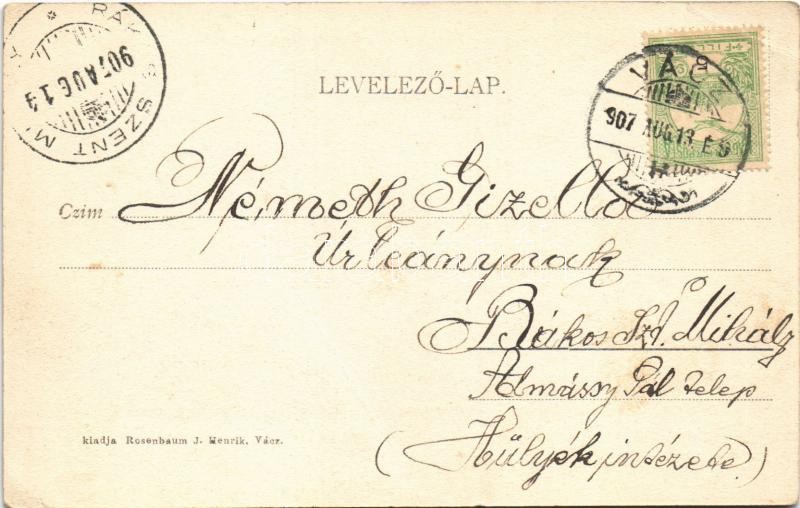 RÁKOS SZENT MI
907 AUG 14
LEVELEZŐ-LAP.
4 FILLÉR
VÁCZ
907 AUG.13. É 5
Czim
Németh Gizella
Úrleánynak
Rákos Szt. Mihály
Almássy Pál telep
(Hülyék intézete)
kiadja Rosenbaum J. Henrik, Vácz.